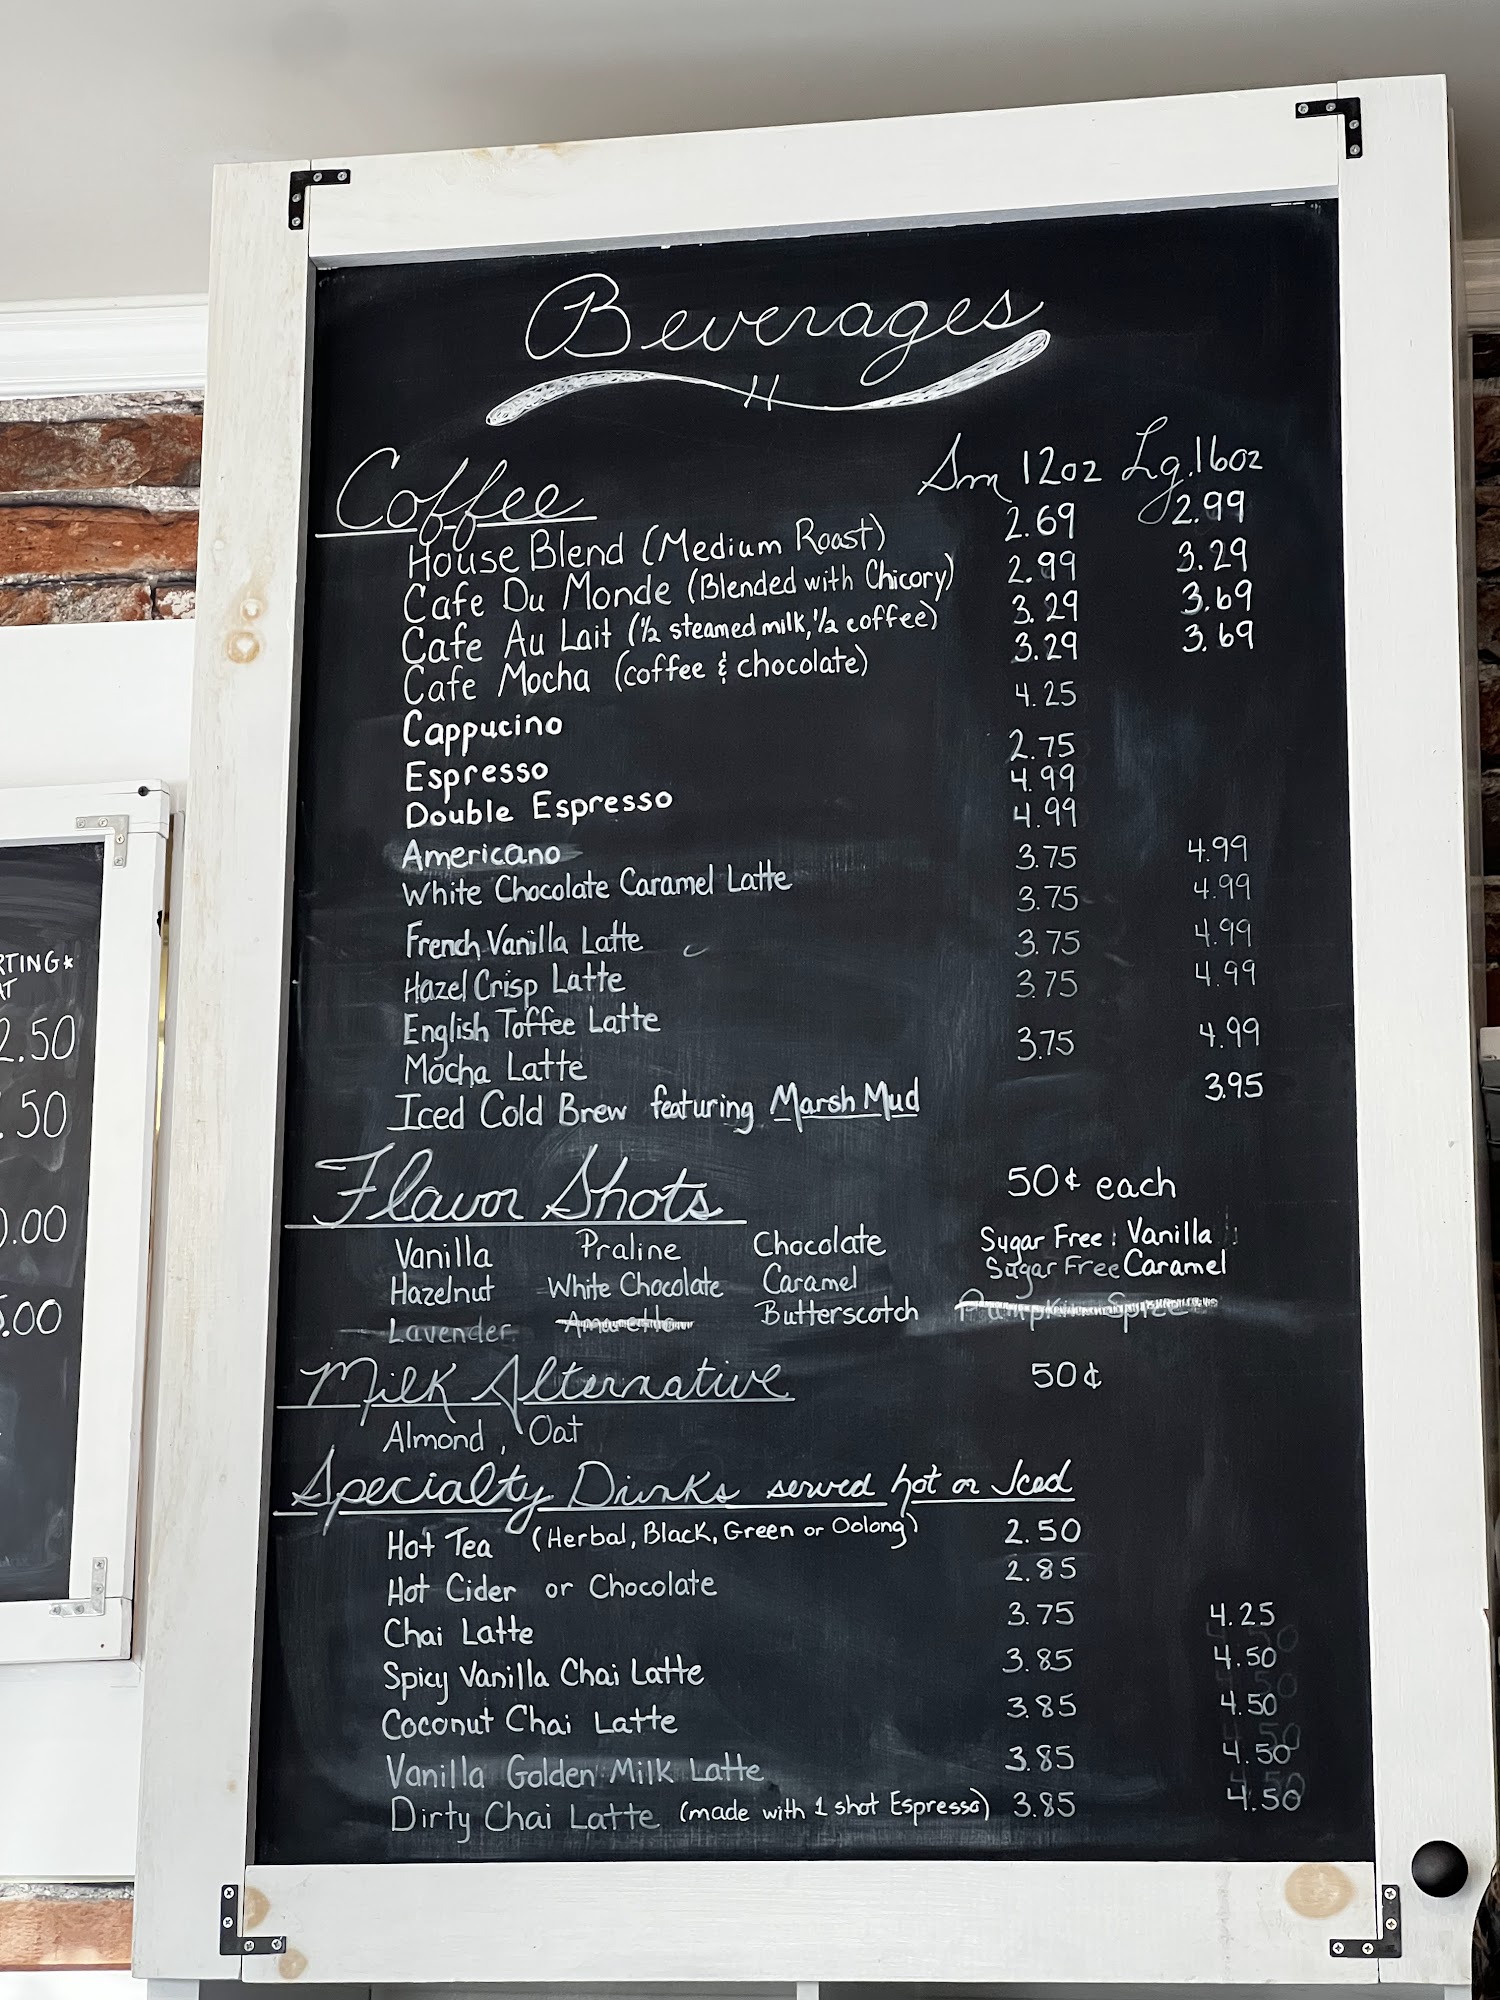 Beverages
Coffee Sm 12oz Lg. 16oz
House Blend (Medium Roast) 2.69 2.99
Cafe Du Monde (Blended with Chicory) 2.99 3.29
Cafe Au Lait (½ steamed milk, ½ coffee) 3.29 3.69
Cafe Mocha (coffee & chocolate) 3.29 3.69
Cappucino 4.25
Espresso 2.75
Double Espresso 4.99
Americano 4.99
White Chocolate Caramel Latte 3.75 4.99
French Vanilla Latte 3.75 4.99
Hazel Crisp Latte 3.75 4.99
English Toffee Latte 3.75 4.99
Mocha Latte 3.75 4.99
Iced Cold Brew featuring Marsh Mud 3.95
Flavor Shots 50¢ each
Vanilla Praline Chocolate Sugar Free: Vanilla
Hazelnut White Chocolate Caramel Sugar Free Caramel
Lavender Amaretto Butterscotch Pumpkin Spice
Milk Alternative 50¢
Almond, Oat
Specialty Drinks served hot or Iced
Hot Tea (Herbal, Black, Green or Oolong) 2.50
Hot Cider or Chocolate 2.85
Chai Latte 3.75 4.25
Spicy Vanilla Chai Latte 3.85 4.50
Coconut Chai Latte 3.85 4.50
Vanilla Golden Milk Latte 3.85 4.50
Dirty Chai Latte (made with 1 shot Espresso) 3.85 4.50
RTING*
AT
2.50
.50
0.00
.00